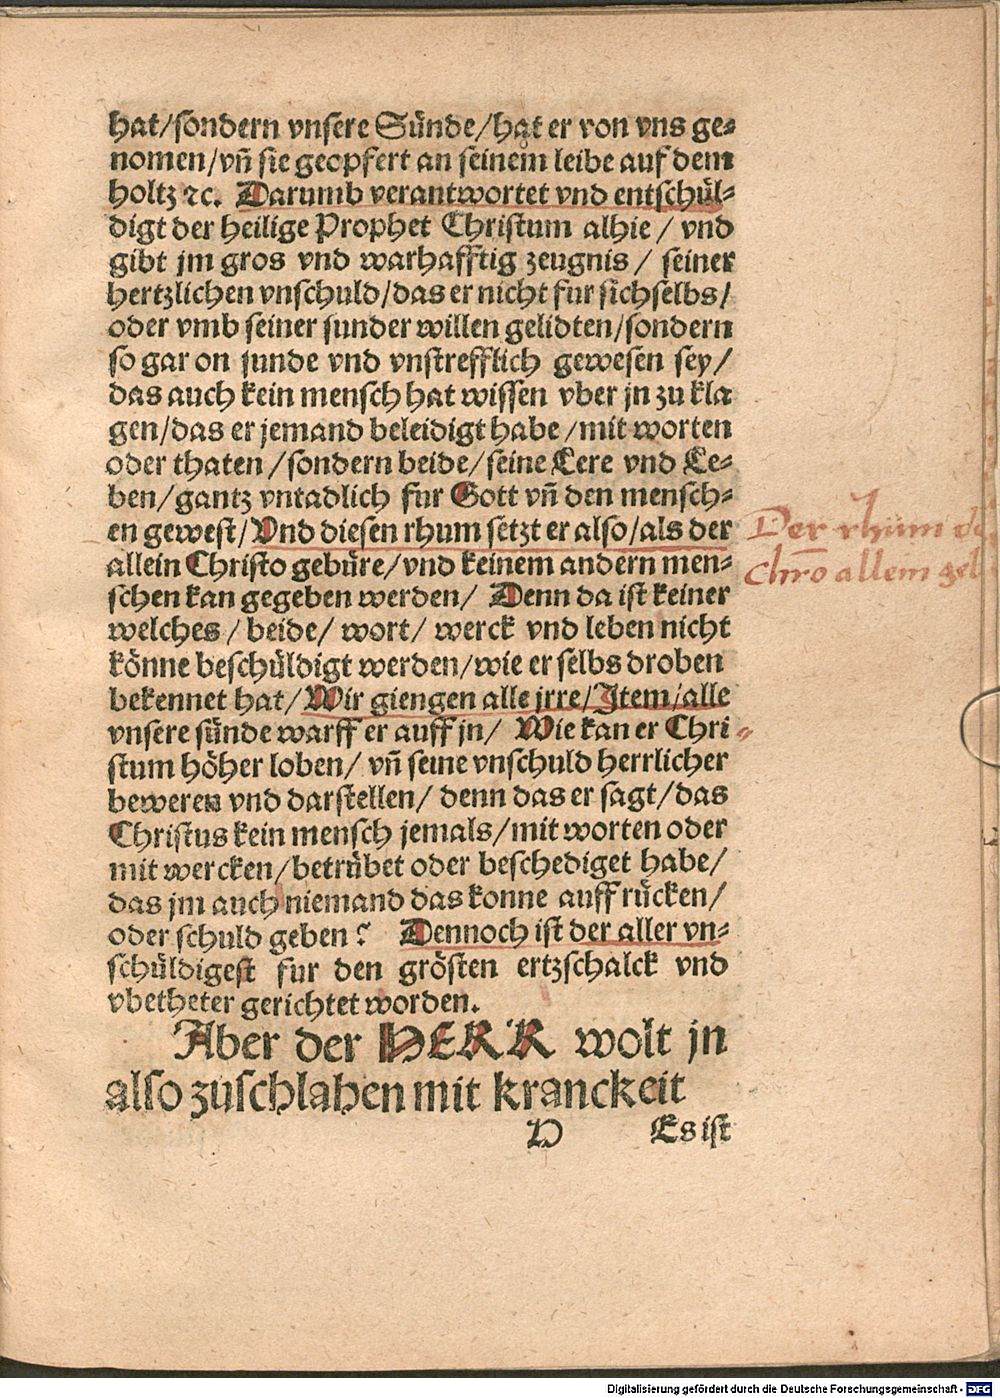 hat/sondern vnsere Sünde/hat er von vns ge⸗
nomen/vñ sie geopfert an seinem leibe auf dem
holtz ꝛc. Darumb verantwortet vnd entschül⸗
digt der heilige Prophet Christum alhie / vnd
gibt jm gros vnd warhafftig zeugnis / seiner
hertzlichen vnschuld/das er nicht fur sichselbs/
oder vmb seiner sunder willen gelidten/sondern
so gar on sunde vnd vnstrefflich gewesen sey/
das auch kein mensch hat wissen vber jn zu kla
gen/das er jemand beleidigt habe /mit worten
oder thaten /sondern beide/seine Lere vnd Le⸗
ben/gantz vntadlich fur Gott vñ den mensch⸗
en gewest/Vnd diesen rhum setzt er also/als der
allein Christo gebüre/vnd keinem andern men⸗
schen kan gegeben werden/ Denn da ist keiner
welches / beide/ wort/ werck vnd leben nicht
könne beschüldigt werden/wie er selbs droben
bekennet hat/Wir giengen alle jrre/Jtem/alle
vnsere sünde warff er auff jn/ Wie kan er Chri⸗
stum höher loben/ vñ seine vnschuld herrlicher
beweren vnd darstellen/ denn das er sagt/das
Christus kein mensch jemals/mit worten oder
mit wercken/betrübet oder beschediget habe/
das jm auch niemand das konne auff rücken/
oder schuld geben? Dennoch ist der aller vn⸗
schüldigest fur den grösten ertzschalck vnd
vbetheter gerichtet worden.
Aber der HERR wolt jn
also zuschlahen mit kranckeit
H Es ist
Der rhům
chr̄o allem
Digitalisierung gefördert durch die Deutsche Forschungsgemeinschaft - DFG